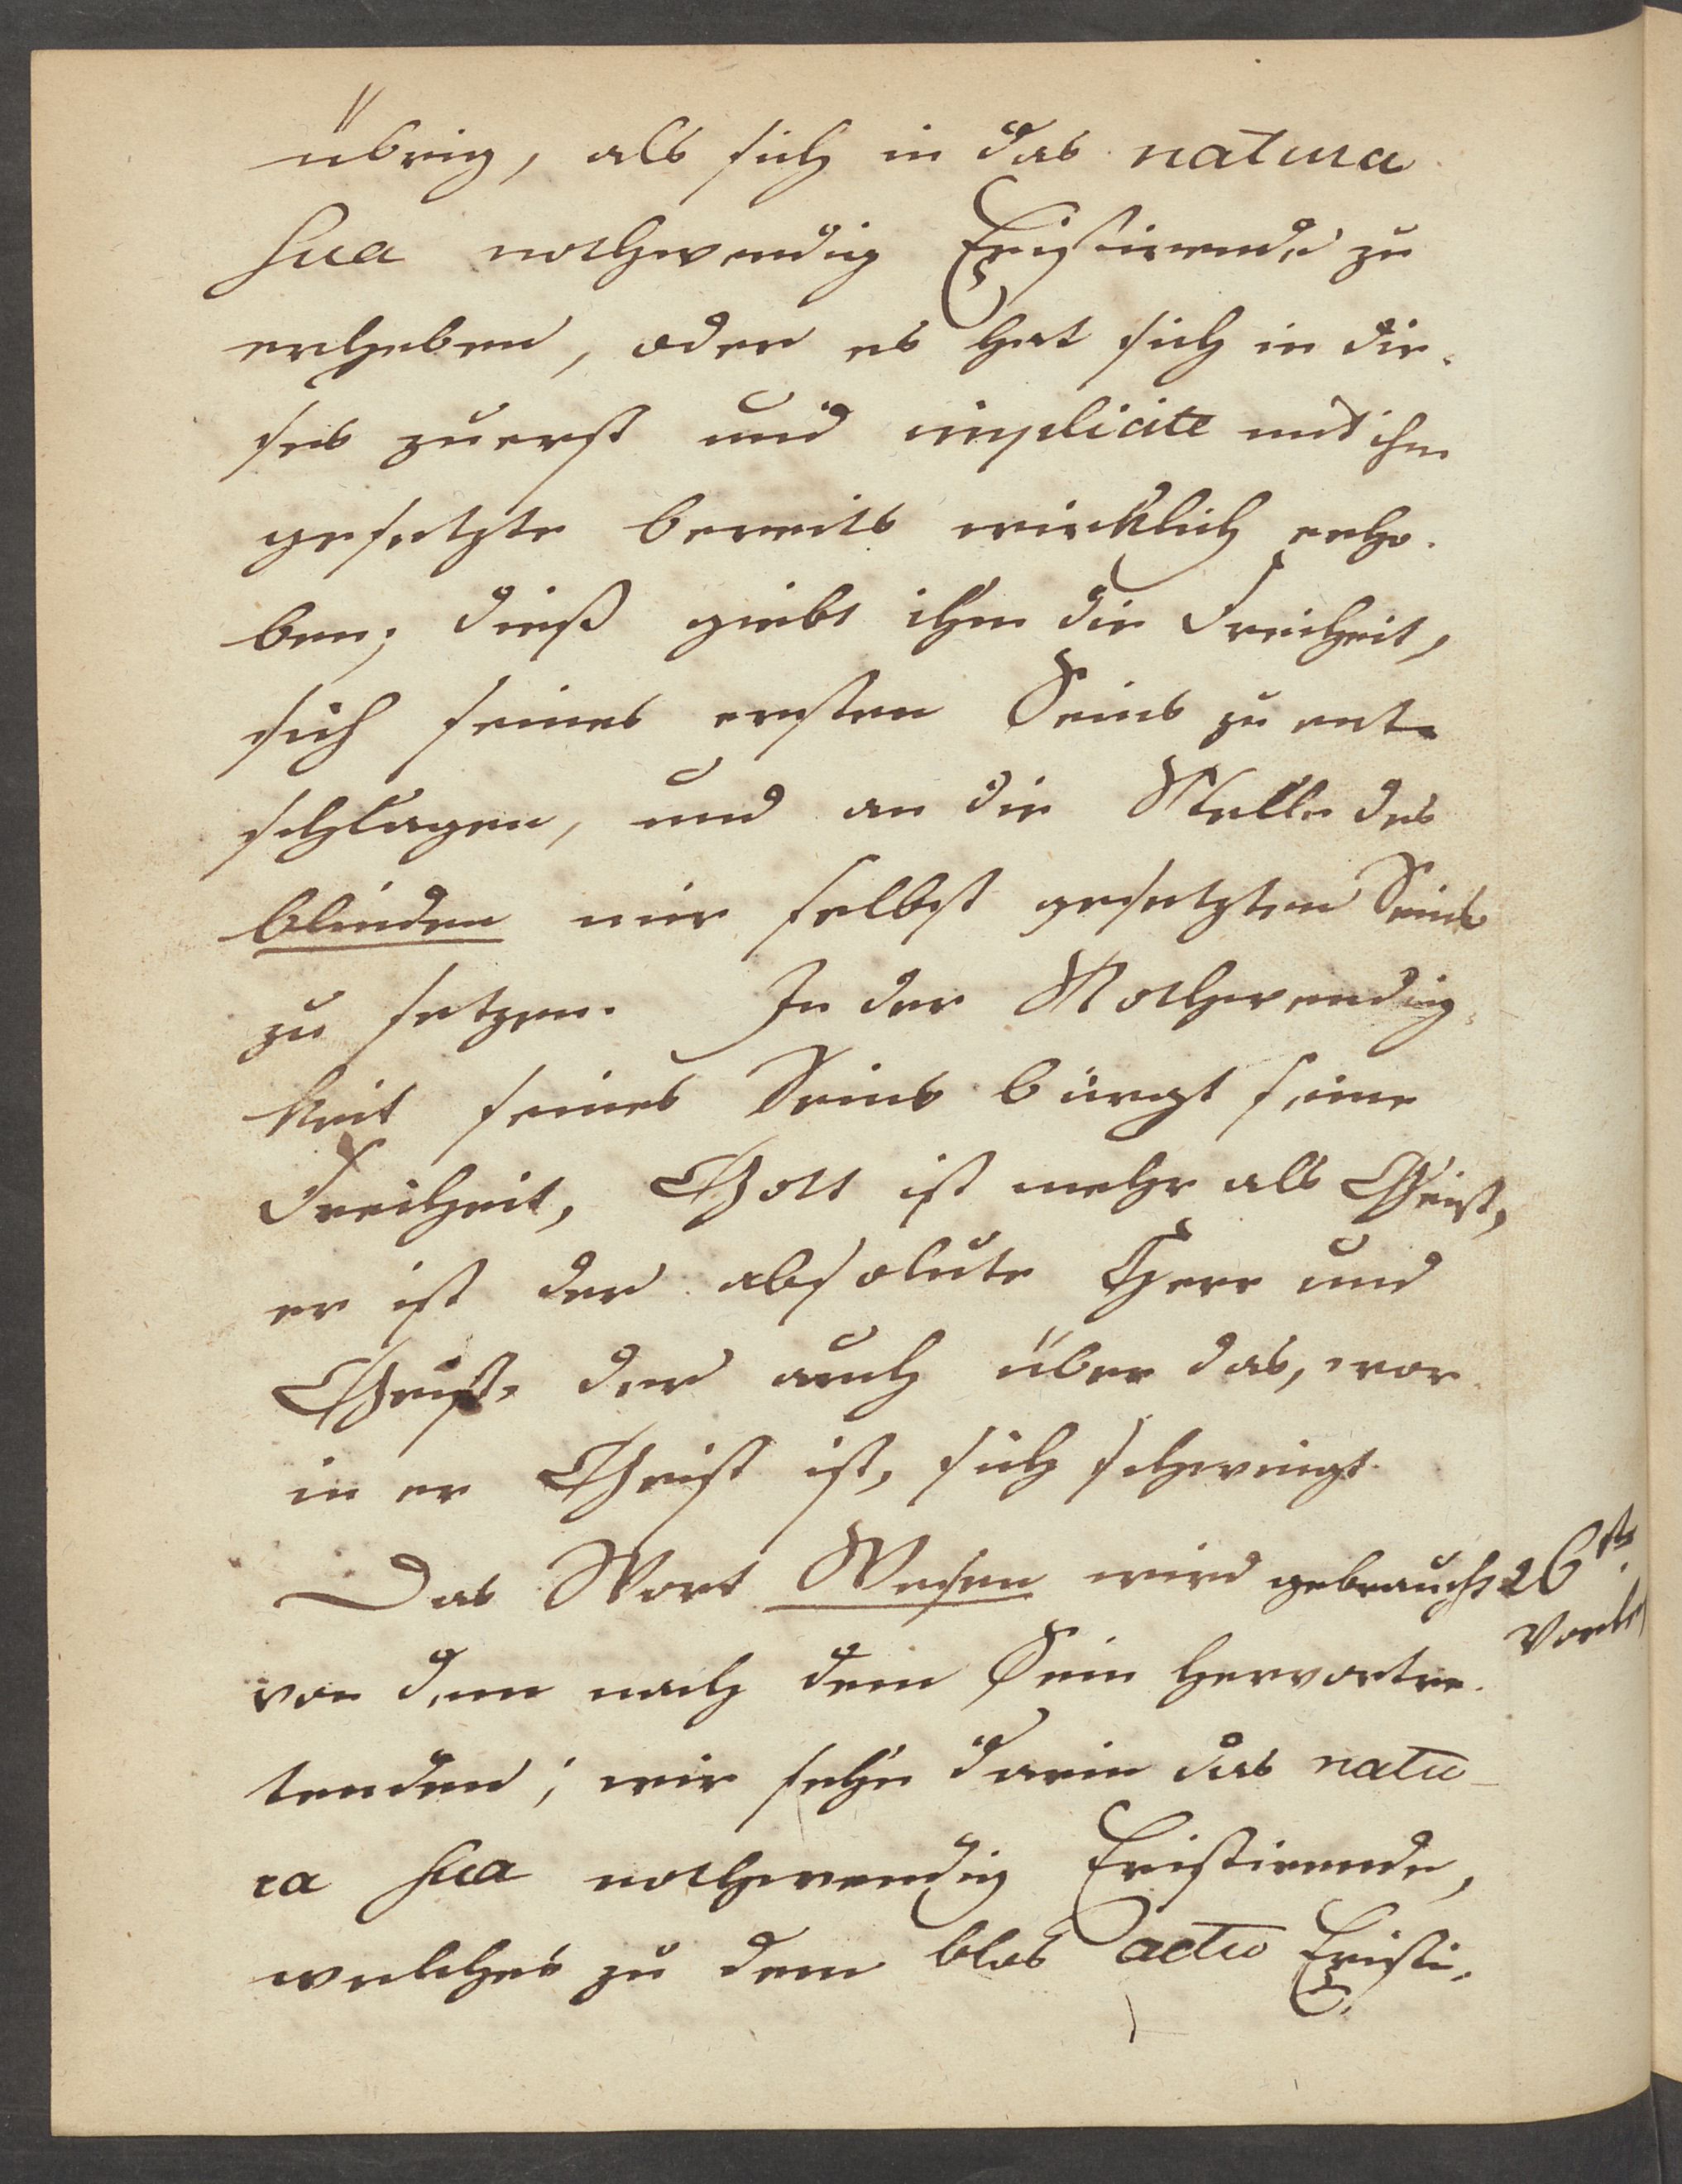 übrig, als sich in das natura
sua nothwendig Existirende zu
erheben, oder es hat sich in die-
ses zuerst und implicite mit ihm
gesetzte bereits wirklich erho-
ben; dieß giebt ihm die Freiheit,
sich seines ersten Seins zu ent-
schlagen, und an die Stelle des
blinden ein selbst gesetzten Seins
zu setzen. In der Nothwendig-
keit seines Seins bürgt seine
Freiheit, Gott ist mehr als Geist,
er ist der absolute Herr und
Geist, der auch über das, wor-
in er Geist ist, sich schwingt.
Das Wort Wesen wird gebraucht
26te
Vorles
von dem nach dem Sein hervortre-
tenden; wir sehn darin das natu-
ra sua nothwendig Existirende,
welches zu dem blos actu Existi-